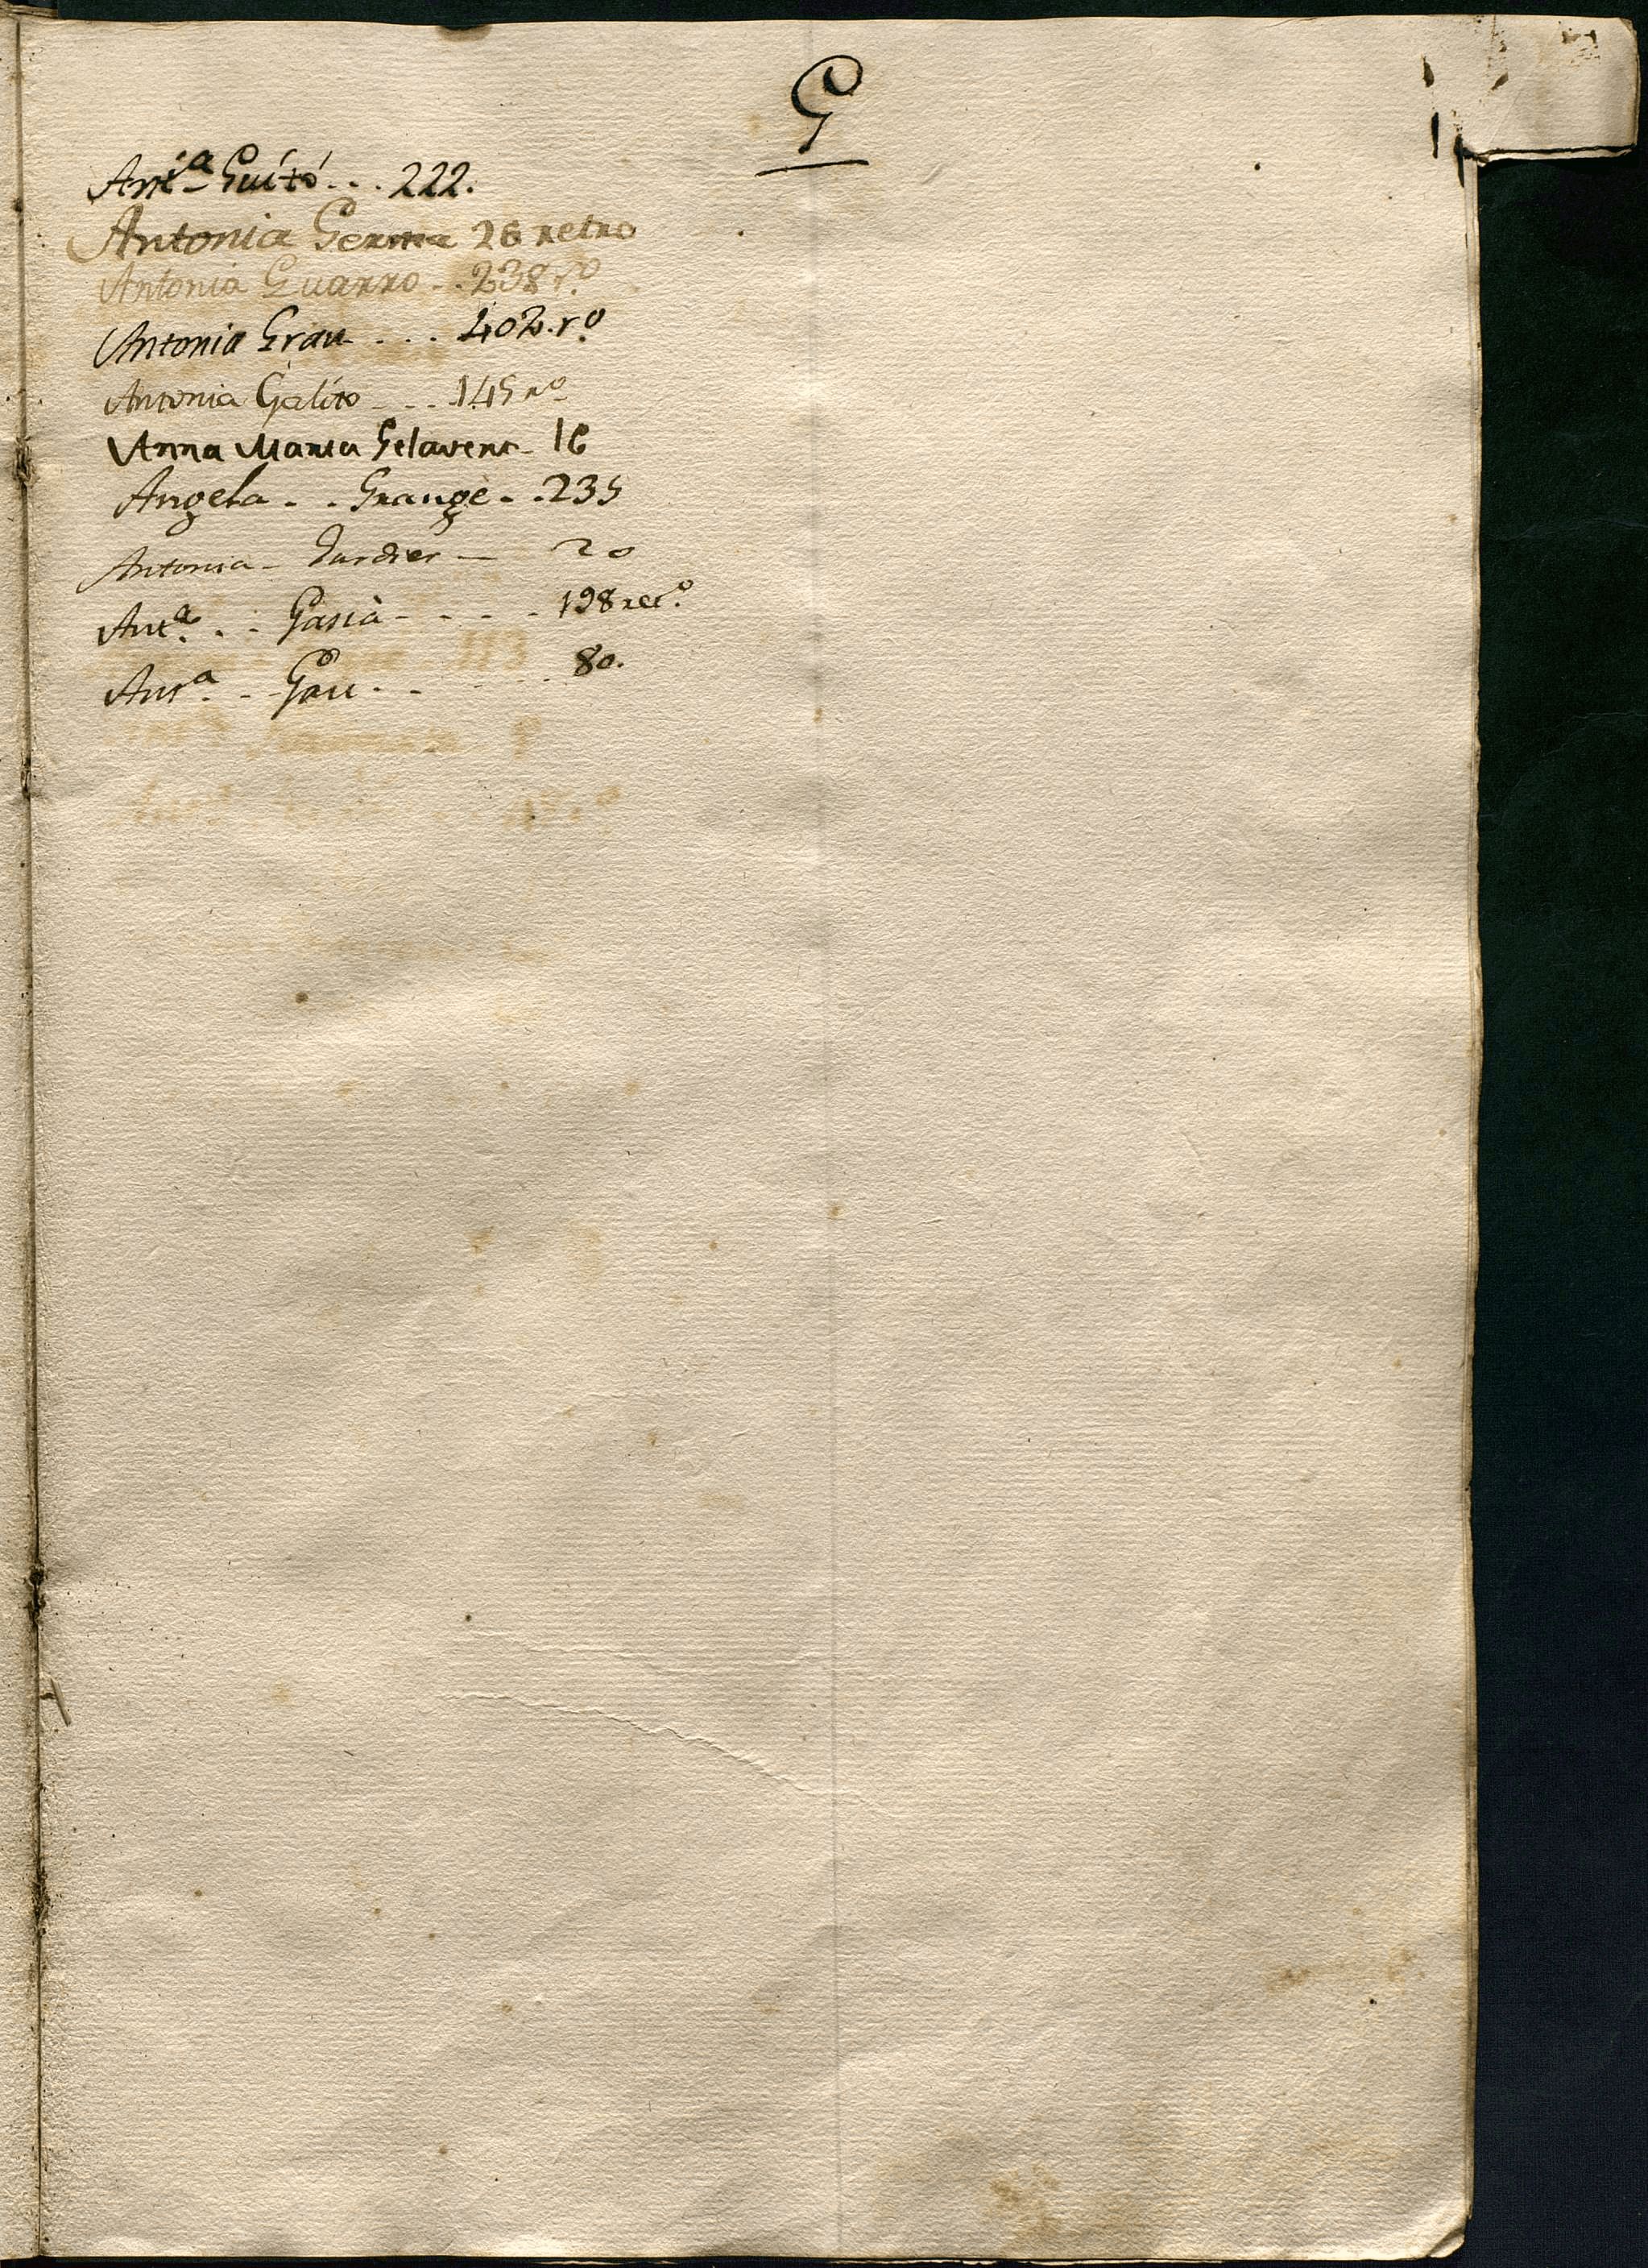 G
Antª Guitó... 222.
Antonia Germa 26 retro
Antonia Guarro - . 238 rº
Antonia Grau . . . 402. rº
Antonia Galito - - - 145 rº
Anna Maria Gelavert - 16
Angela - . Grangè - . 235
Antonia - Gurdier — 20
Antª. . - Gasià - - - - 198 retº.
Antª. - - Gau - . . 80.